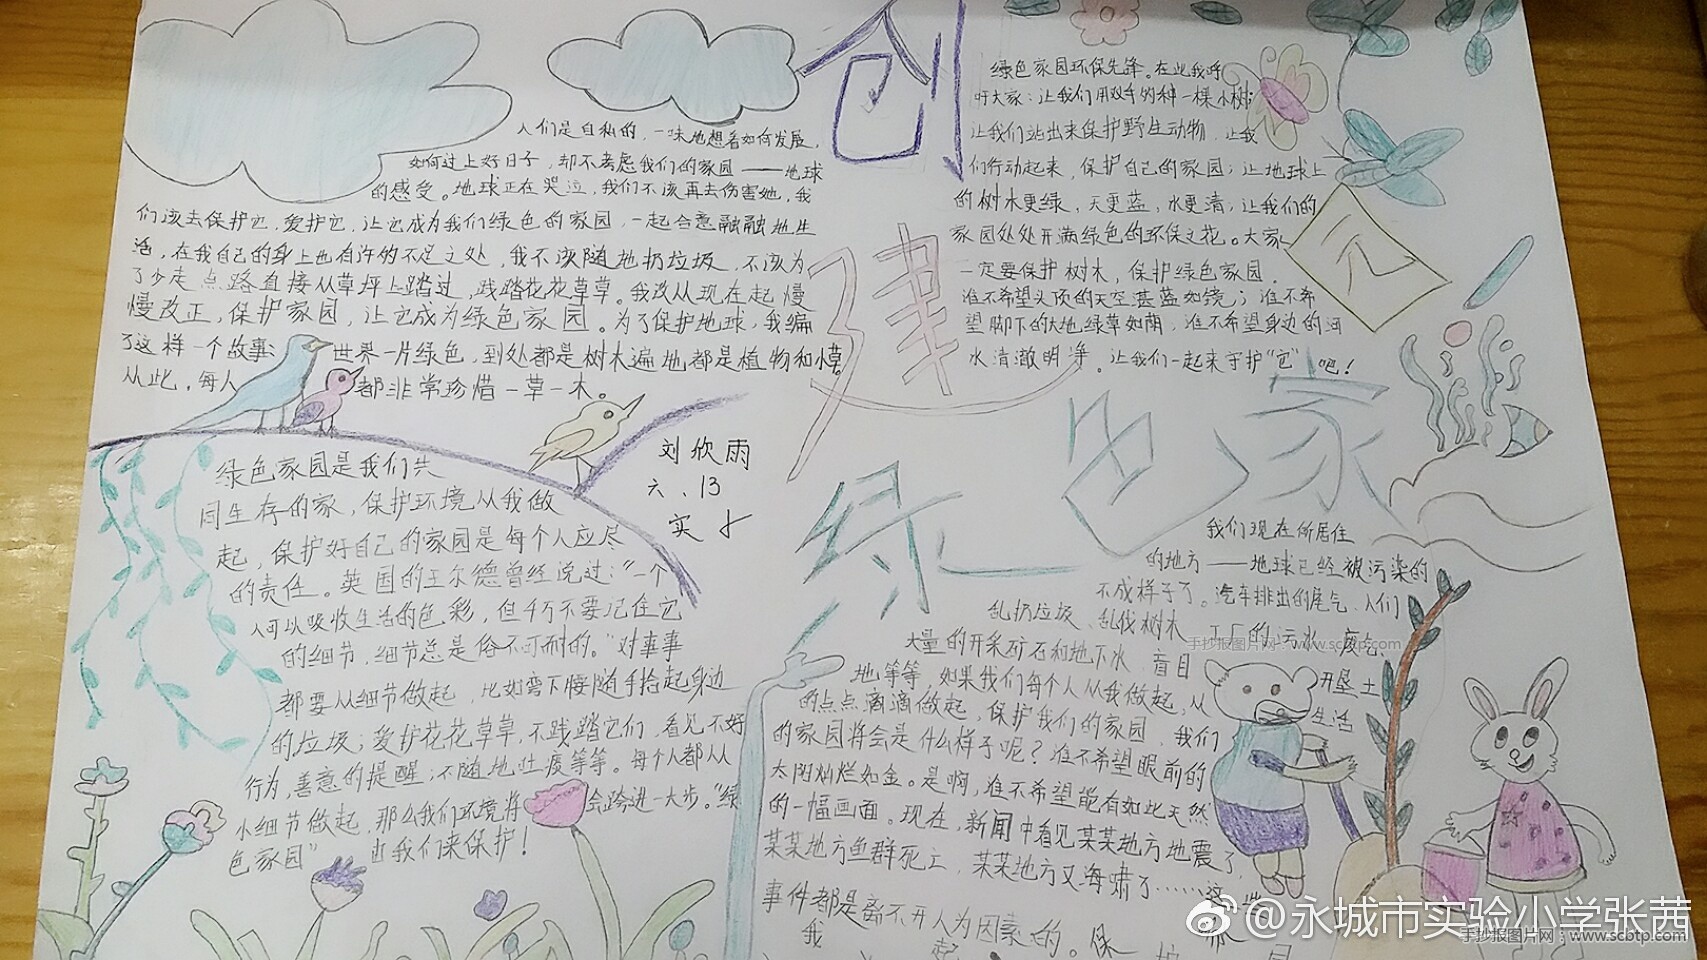 创
建
绿色家
人们是自私的，一味地想着如何发展，
如何过上好日子，却不考虑我们的家园——地球
的感受。地球正在哭泣，我们不该再去伤害她，我
们该去保护它，爱护它，让它成为我们绿色的家园，一起合意融融地生
活，在我自己的身上也有许多的不足之处，我不该随地扔垃圾，不该为
了少走点路直接从草坪上踏过，践踏花花草草。我改从现在起慢
慢改正，保护家园，让它成为绿色家园。为了保护地球，我编
了这样一个故事：世界一片绿色，到处都是树木遍地都是植物和
从此，每人都非常珍惜一草一木。
绿色家园环保先锋。在此我呼
吁大家：让我们用双手种一棵小树；
让我们站出来保护野生动物，让我
们行动起来，保护自己的家园；让地球上
的树木更绿，天更蓝，水更清；让我们的
家园处处开满绿色的环保之花。大家
一定要保护树木，保护绿色家园．
谁不希望头顶的天空湛蓝如镜；谁不希
望脚下的大地绿草如茵，谁不希望身边的河
水清澈明净。让我们一起来守护“它”吧！
刘欣雨
六、13
实
绿色家园是我们共
同生存的家，保护环境从我做
起，保护好自己的家园是每个人应尽
的责任。英国的王尔德曾经说过：“一个
人可以吸收生活的色彩，但千万不要记住它
的细节，细节总是俗不可耐的。”对事事
都要从细节做起，比如弯下腰随手捡起身边
的垃圾；爱护花花草草，不践踏它们，看见不好
行为，善意的提醒；不随地吐痰等等。每个人都从
小细节做起，那么我们环境将会跨进一大步。“绿
色家园”　由我们来保护！
我们现在所居住
的地方——地球已经被污染的
不成样子了。汽车排出的尾气、人们
乱扔垃圾、乱伐树木、工厂的污水、废
大量的开采矿石和地下水，盲目开垦土
地等等，如果我们每个人从我做起，从生活
的点点滴滴做起，保护我们的家园，我们
的家园将会是什么样子呢？谁不希望眼前的
太阳灿烂如金。是啊，谁不希望能有如此天然
的一幅画面。现在，新闻中看见某某地方地震了，
某某地方鱼群死亡，某某地方又海啸了……这些
事件都是离不开人为因素的。保护家园
我　起
手抄报图片网：www.scbtp.com
@永城市实验小学张茜
手抄报图片网：www.scbtp.com